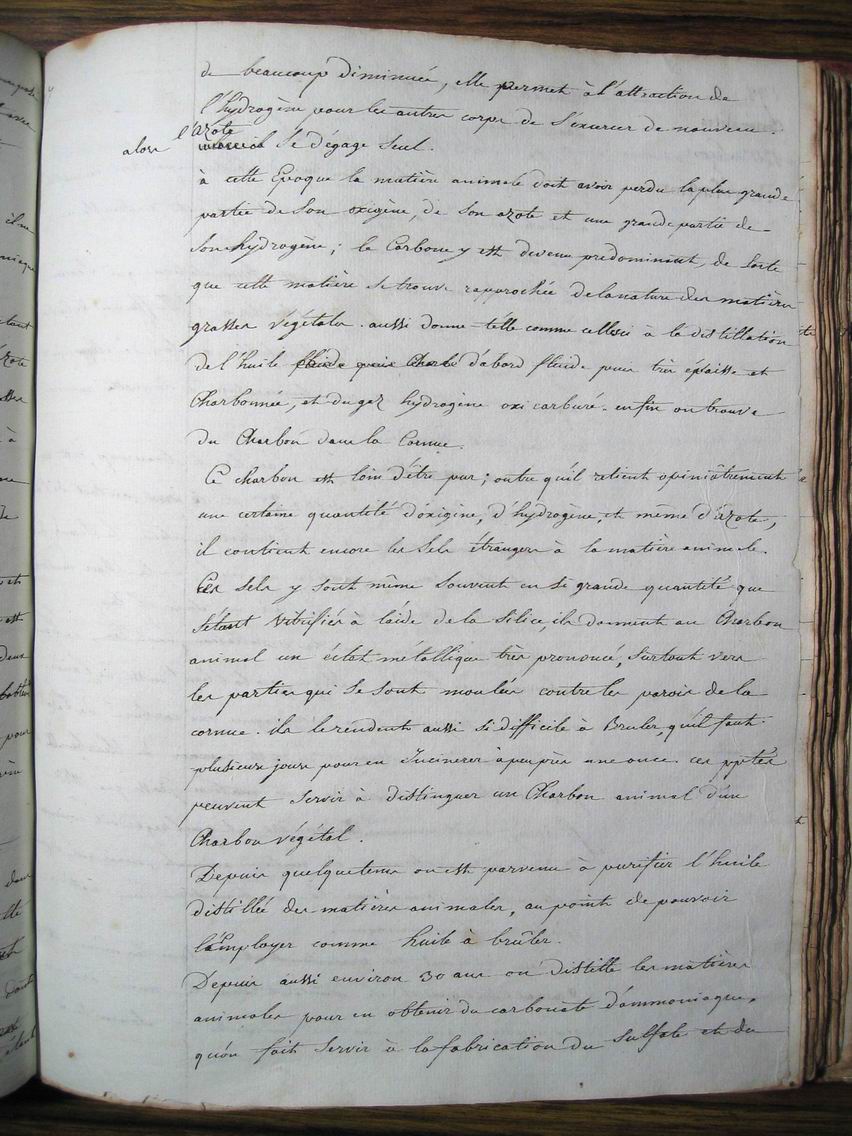 de beaucoup Diminuée, elle permet à l'attraction de
l'hydrogène pour les autres corps de S'exercer de nouveau.
alors l'azote Se dégage Seul.
à cette Epoque la matière animale doit avoir perdu la plus grande
partie de Son oxigène, de Son azote et une grande partie de
Son hydrogène; le Carbone y est devenu predominant, de Sorte
que cette matière se trouve rapprochée de la nature des matières
grasses végétales. aussi donne-t-elle comme celles ci à la distillation
de l'huile fluide puis Charbo d'abord fluide puis très épaisse et
Charbonnée, et du gaz hydrogène oxi carburé. enfin on trouve
du Charbon dans la Cornue.
Ce charbon est loin d'être pur; outre qu'il retient opiniâtrement
une certaine quantité d'oxigine, d'hydrogène, et même d'azote,
il contient encore les Sels étrangers à la matière animale.
Ces Sels y sont même Souvent en si grande quantité que
S'étant Vitrifiés à l'aide de la Silice, ils donnent au Charbon
animal un éclat métallique très prononcé, Surtout vers
les parties qui Se Sont moulées contre les parois de la
cornue. ils le rendent aussi si difficile à Bruler, qu'il faut
plusieurs jours pour en Incinerer àpeuprès une once. ces pptés
peuvent Servir à distinguer un Charbon animal d'un
Charbon végétal.
Depuis quelque tems on est parvenu à purifier l'huile
distillée des matières animales, au point de pouvoir
l'Employer comme huile à brûler.
Depuis aussi environ 30 ans on distille les matières
animales pour en obtenir du carbonate d'ammoniaque,
qu'on fait Servir à la fabrication du Sulfate et du